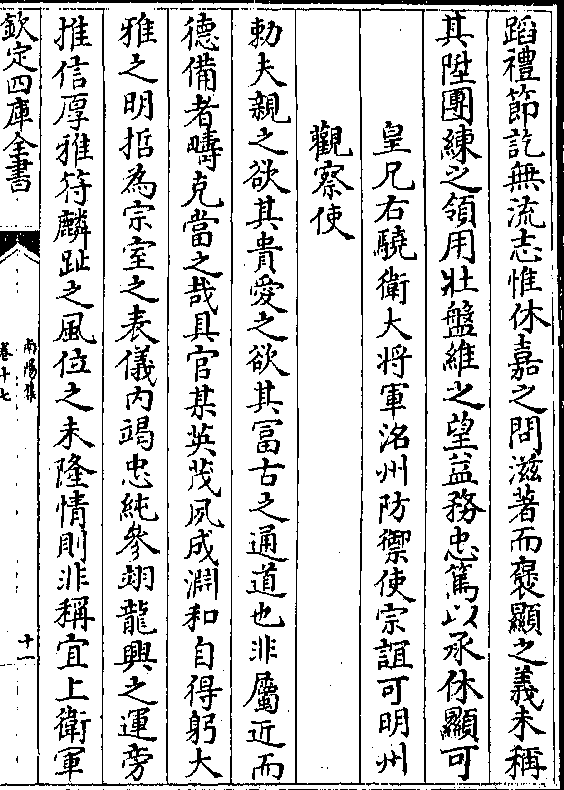 蹈禮節訖無流志惟休嘉之問滋著而褒顯之義未稱
其陞團練之領用壯盤維之望益務忠篤以承休顯可
皇兄右驍衛大將軍洺州防禦使宗誼可明州
觀察使
勅夫親之欲其貴愛之欲其富古之通道也非屬近而
德備者疇克當之哉具官某英茂夙成淵和自得躬大
雅之明哲為宗室之表儀內竭忠純參翊龍興之運旁
推信厚雅符麟趾之風位之未隆情則非稱宜上衛軍
欽定四庫全書
南陽集
卷十七
十一